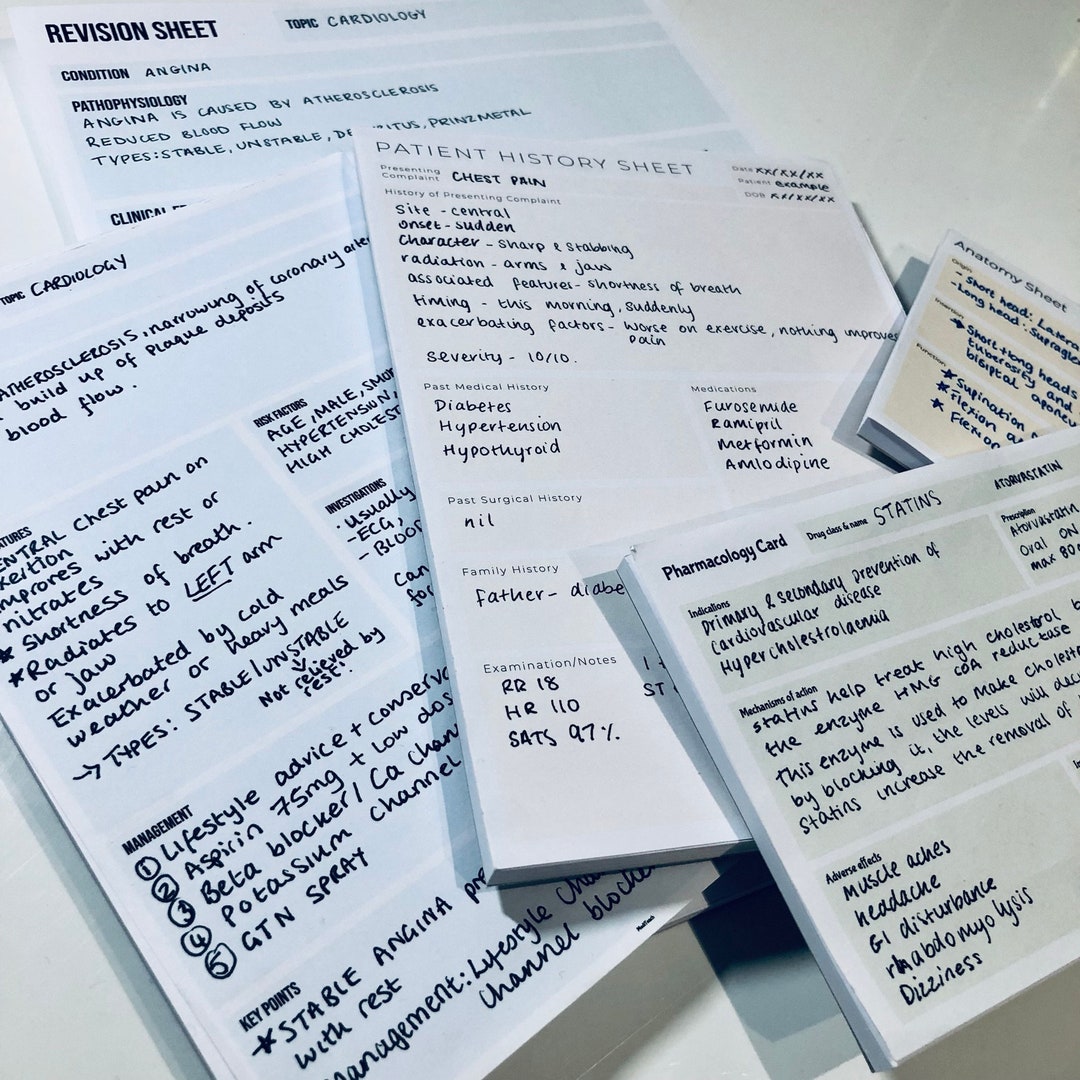 REVISION SHEET
TOPIC CARDIOLOGY
CONDITION ANGINA
PATHOPHYSIOLOGY
ANGINA IS CAUSED BY ATHEROSCLEROSIS
REDUCED BLOOD FLOW
TYPES: STABLE, UNSTABLE, PRINZMETAL
CLINICAL
TOPIC CARDIOLOGY
ATHEROSCLEROSIS, narrowing of coronary
build up of plaque deposits
blood flow.
RISK FACTORS
AGE, MALE,
HYPERTENSION,
HIGH
CENTRAL chest pain on
exertion
improves with rest or
nitrates
* Shortness of breath.
*Radiates to LEFT arm
or jaw
Exacerbated by cold
weather or heavy meals
→ TYPES: STABLE/UNSTABLE
Not relieved by
rest!
INVESTIGATIONS
- usually
- ECG,
- BLOOD
can
MANAGEMENT
① Lifestyle advice +
② Aspirin 75mg + low
③ Beta blocker / Ca
④ Potassium channel
⑤ GTN SPRAY
KEY POINTS
* STABLE ANGINA
with rest
Management: Lifestyle
channel
PATIENT HISTORY SHEET
Date xx/xx/xx
Patient example
DOB xx/xx/xx
Presenting
Complaint CHEST PAIN
History of Presenting Complaint
Site - central
onset - sudden
character - sharp & stabbing
radiation - arms & jaw
associated features - shortness of breath
timing - this morning, suddenly
exacerbating factors - worse on exercise, nothing improves
pain
severity - 10/10.
Past Medical History
Diabetes
Hypertension
Hypothyroid
Medications
Furosemide
Ramipril
Metformin
Amlodipine
Past Surgical History
nil
Family History
Father -
Examination/Notes
RR 18
HR 110
SATS 97%
ST
Anatomy Sheet
Origin
- Short head:
- Long head:
Insertion
→ Short + long heads
tuberosity and
bicipital
Function
* Supination
* Flexion
* Flexion
Pharmacology Card
Drug class & name STATINS
ATORVASTATIN
Indications
primary & secondary prevention of
cardiovascular disease
Hypercholestrolaemia
Prescription
Atorvastatin
Oral
max
Mechanisms of action
statins help treat high cholestrol
the enzyme HMG COA reductase
this enzyme is used to make
by blocking it, the levels will
statins increase the removal of
Adverse effects
Muscle aches
headache
GI disturbance
rhabdomyolysis
Dizziness